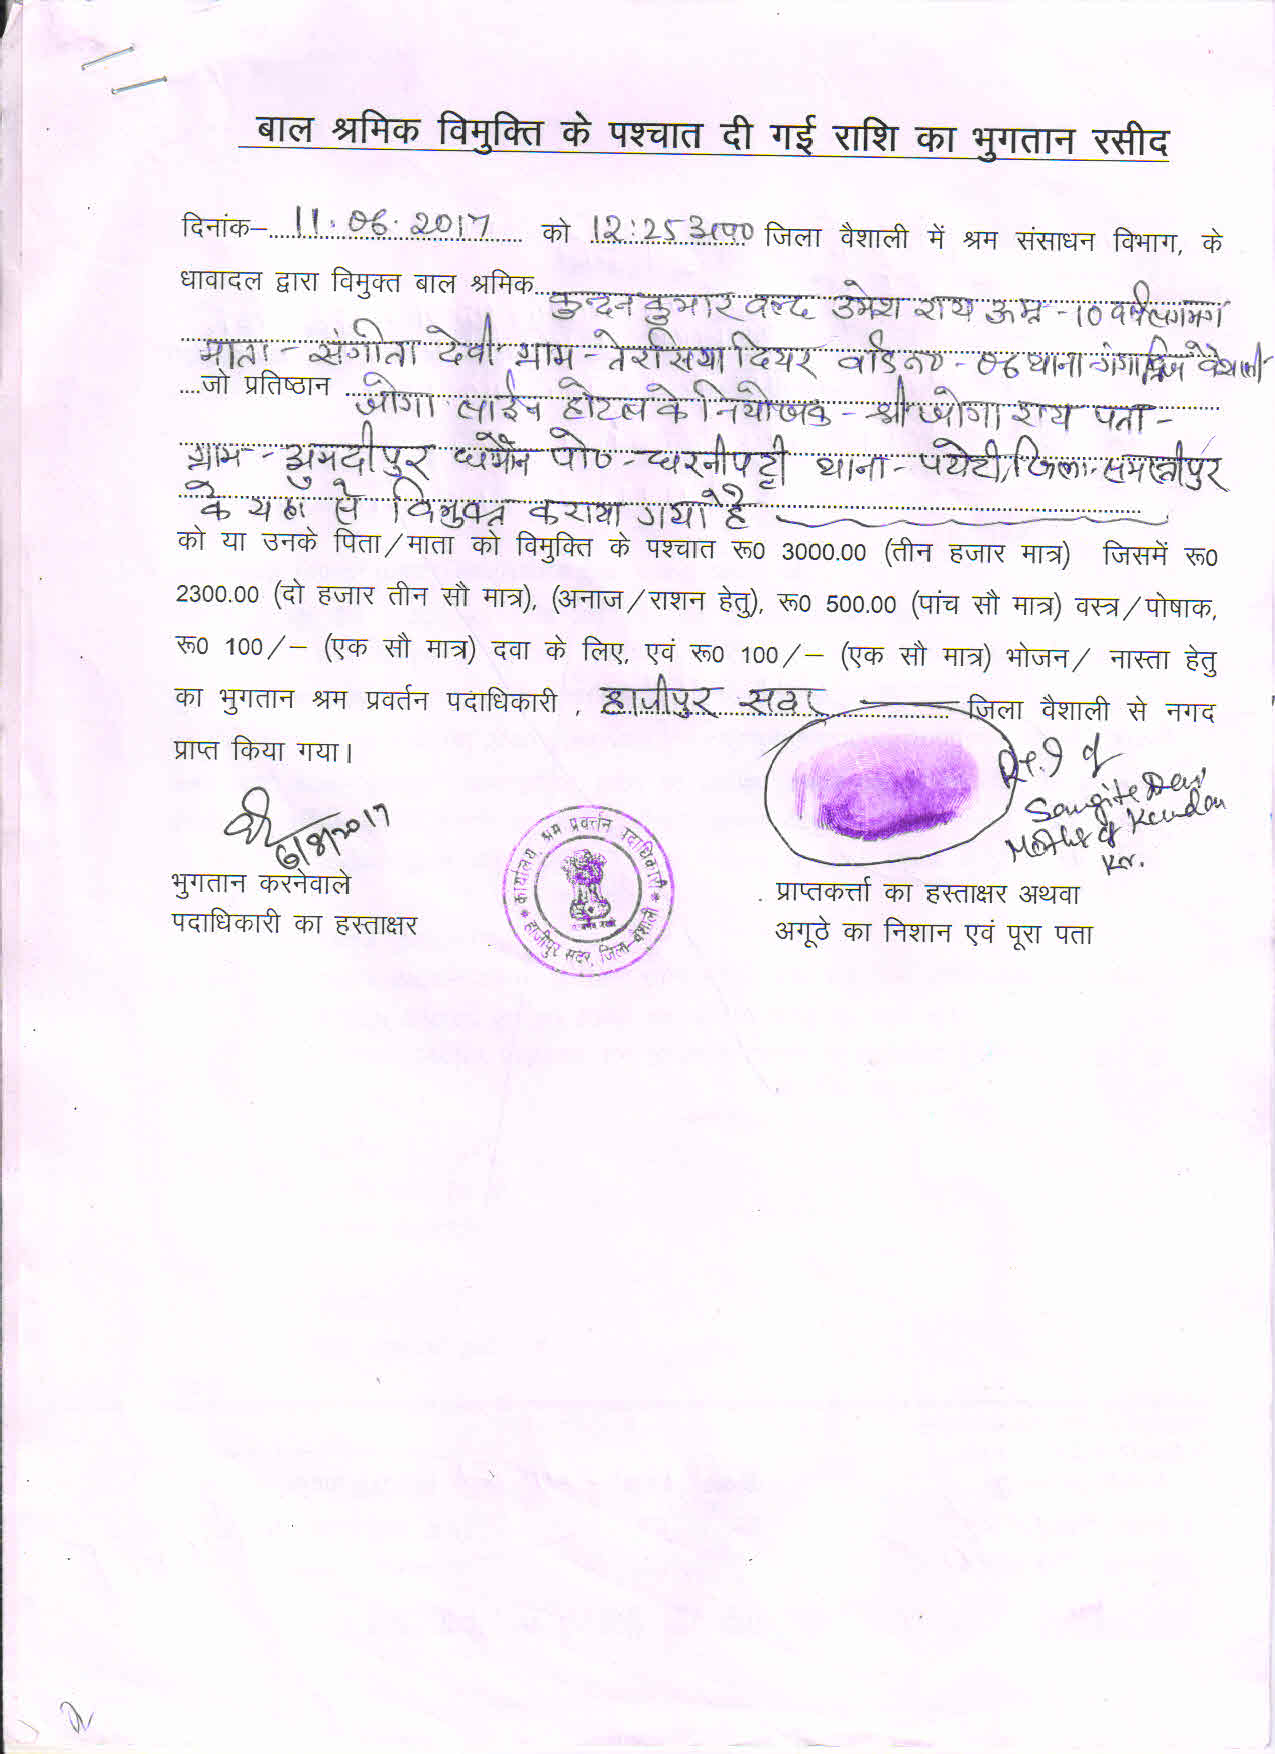 बाल श्रमिक विमुक्ति के पश्चात दी गई राशि का भुगतान रसीद
दिनांक–....11.06.2017.... को 12:25 अप० जिला वैशाली में श्रम संसाधन विभाग, के
धावादल द्वारा विमुक्त बाल श्रमिक...कुन्दन कुमार वल्द उमेश राय उम्र - 10 वर्ष लगभग
माता - संगीता देवी ग्राम - तेरसिया दियर वार्ड न० - 06 थाना गंगाब्रिज वैशाली
....जो प्रतिष्ठान ...जोगा लाईन होटल के नियोजक - श्री जोगा राय पता -
ग्राम - पो० - थाना - जिला - समस्तीपुर
के यहां से विमुक्त कराया गया है
को या उनके पिता/माता को विमुक्ति के पश्चात रू0 3000.00 (तीन हजार मात्र) जिसमें रू0
2300.00 (दो हजार तीन सौ मात्र), (अनाज/राशन हेतु), रू0 500.00 (पांच सौ मात्र) वस्त्र/पोषाक,
रू0 100/– (एक सौ मात्र) दवा के लिए, एवं रू0 100/– (एक सौ मात्र) भोजन/ नास्ता हेतु
का भुगतान श्रम प्रवर्तन पदाधिकारी , हाजीपुर सदर जिला वैशाली से नगद
प्राप्त किया गया।
of
Sangita Devi
Mother of Kundan
Kr.
6/8/2017
भुगतान करनेवाले
पदाधिकारी का हस्ताक्षर
कार्यालय, श्रम प्रवर्त्तन पदाधिकारी
हाजीपुर सदर, जिला-वैशाली
प्राप्तकर्त्ता का हस्ताक्षर अथवा
अगूठे का निशान एवं पूरा पता